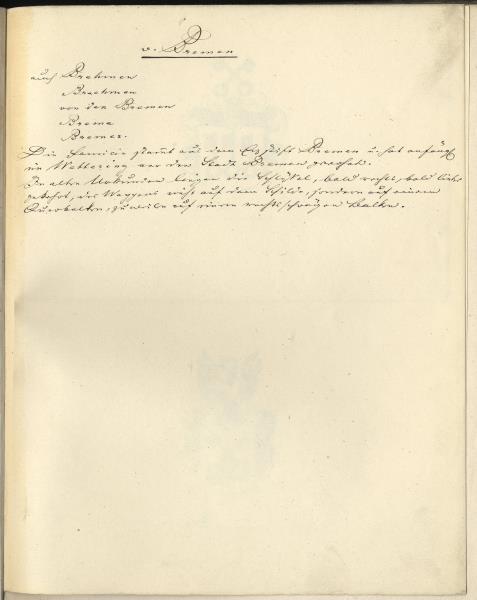 v. Bremen
auch Brehmen
Brechmen
von der Bremen
Brema
Bremer.
Die Familie stamt aus dem Erzstift Bremen u. hat anfängl.
in Wettering vor der Stadt Bremen gewohnt.
In alten Urkunden liegen die Schlüssel, bald rechts, bald links
gekehrt, des Wappens nicht auf dem Schilde, sondern auf einem
Querbalken, zuweilen auf einem rechtsschrägen Balken.